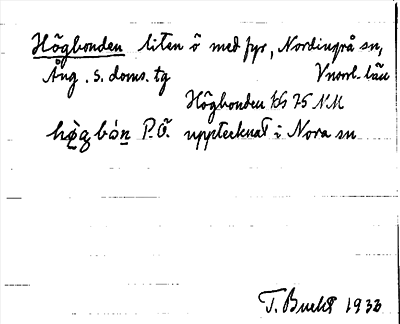 Högbonden liten ö med fyr, Nordingrå sn,
Ång. s. doms. tg Vnorrl. län
Högbonden kbl 75 NM
hö̀gbón P.Ö. upptecknat i Nora sn
T. Bucht 1933